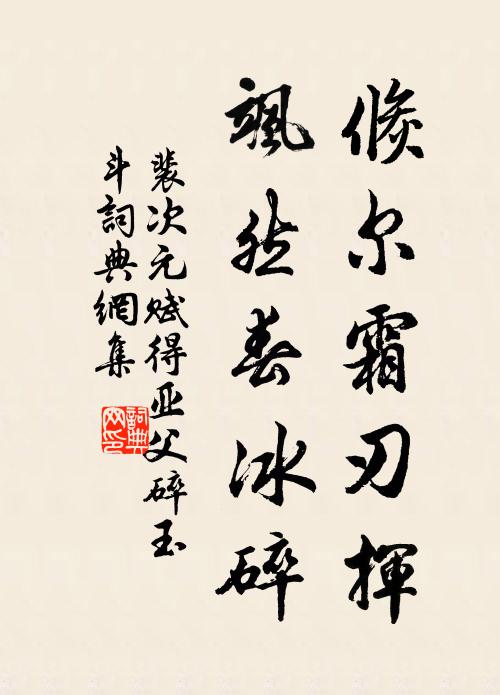 倐尔霜刃揮
飒然春冰碎
裴次元赋得亚父碎玉
斗詞典網集
詞典
网印